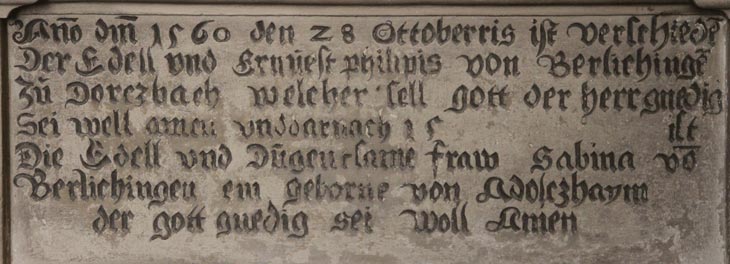 Año dm̄ 1560 den 28 Ottoberris ist verschiedē
Der Edell vnd Ernvest philipis von Berlichingē
Zů Dorczbach welcher sell gott der herr gnedig
Sei well amen vnd darnach 15 ist
Die Edell vnd Důgentsame fraw Sabina vō
Berlichingen ein geborne von Adolczhaym
der gott gnedig sei woll Amen